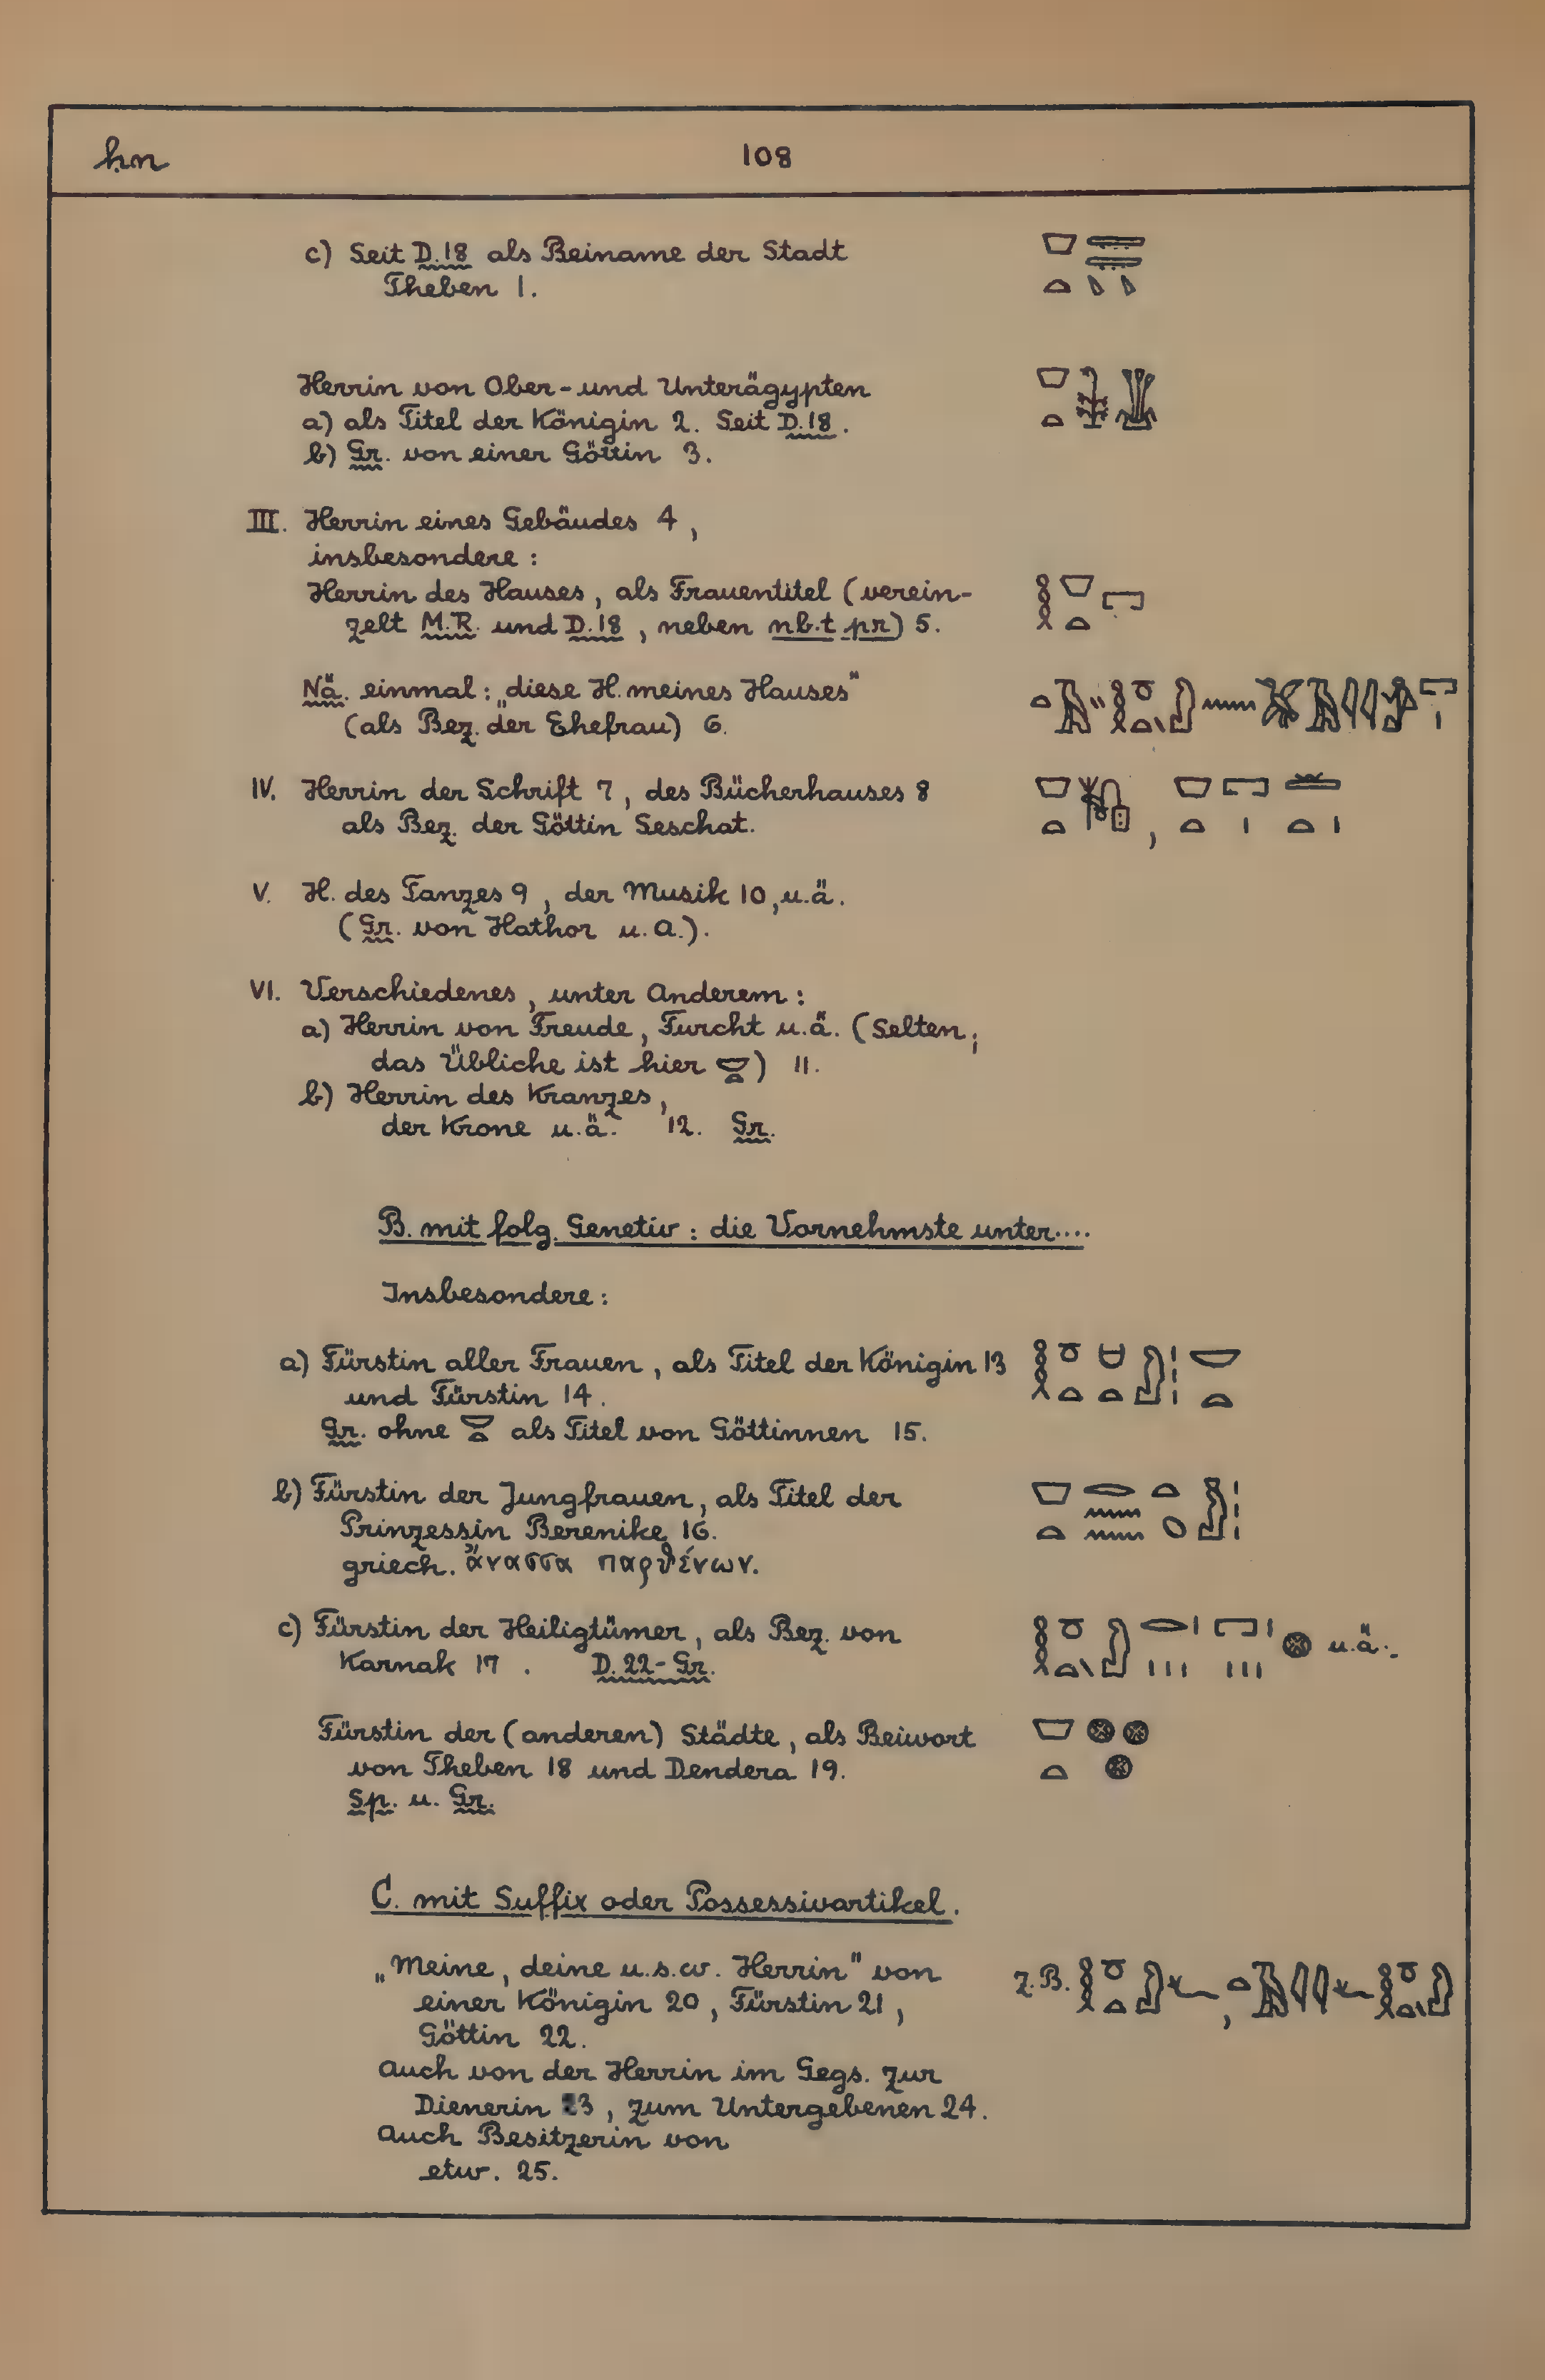 ḥn 108
c) Seit D.18 als Beiname der Stadt
Theben 1.
Herrin von Ober- und Unterägypten
a) als Titel der Königin 2. Seit D.18.
b) Gr. von einer Göttin 3.
III. Herrin eines Gebäudes 4,
insbesondere:
Herrin des Hauses, als Frauentitel (verein-
zelt M.R. und D.18, neben nb.t pr) 5.
Nä. einmal: „diese H. meines Hauses"
(als Bez. der Ehefrau) 6.
IV. Herrin der Schrift 7, des Bücherhauses 8
als Bez. der Göttin Seschat.
V. H. des Tanzes 9, der Musik 10, u.ä.
(Gr. von Hathor u. a.).
VI. Verschiedenes, unter Anderem:
a) Herrin von Freude, Furcht u.ä. (selten;
das Übliche ist hier 𓎟𓏏) 11.
b) Herrin des Kranzes,
der Krone u.ä. 12. Gr.
B. mit folg. Genetiv: die Vornehmste unter....
Insbesondere:
a) Fürstin aller Frauen, als Titel der Königin 13
und Fürstin 14.
Gr. ohne 𓎟𓏏 als Titel von Göttinnen 15.
b) Fürstin der Jungfrauen, als Titel der
Prinzessin Berenike 16.
griech. ἄνασσα παρθένων.
c) Fürstin der Heiligtümer, als Bez. von u.ä.
Karnak 17. D.22-Gr.
Fürstin der (anderen) Städte, als Beiwort
von Theben 18 und Dendera 19.
Sp. u. Gr.
C. mit Suffix oder Possessivartikel.
„Meine, deine u.s.w. Herrin" von z.B.
einer Königin 20, Fürstin 21,
Göttin 22.
Auch von der Herrin im Gegs. zur
Dienerin 23, zum Untergebenen 24.
Auch Besitzerin von
etw. 25.